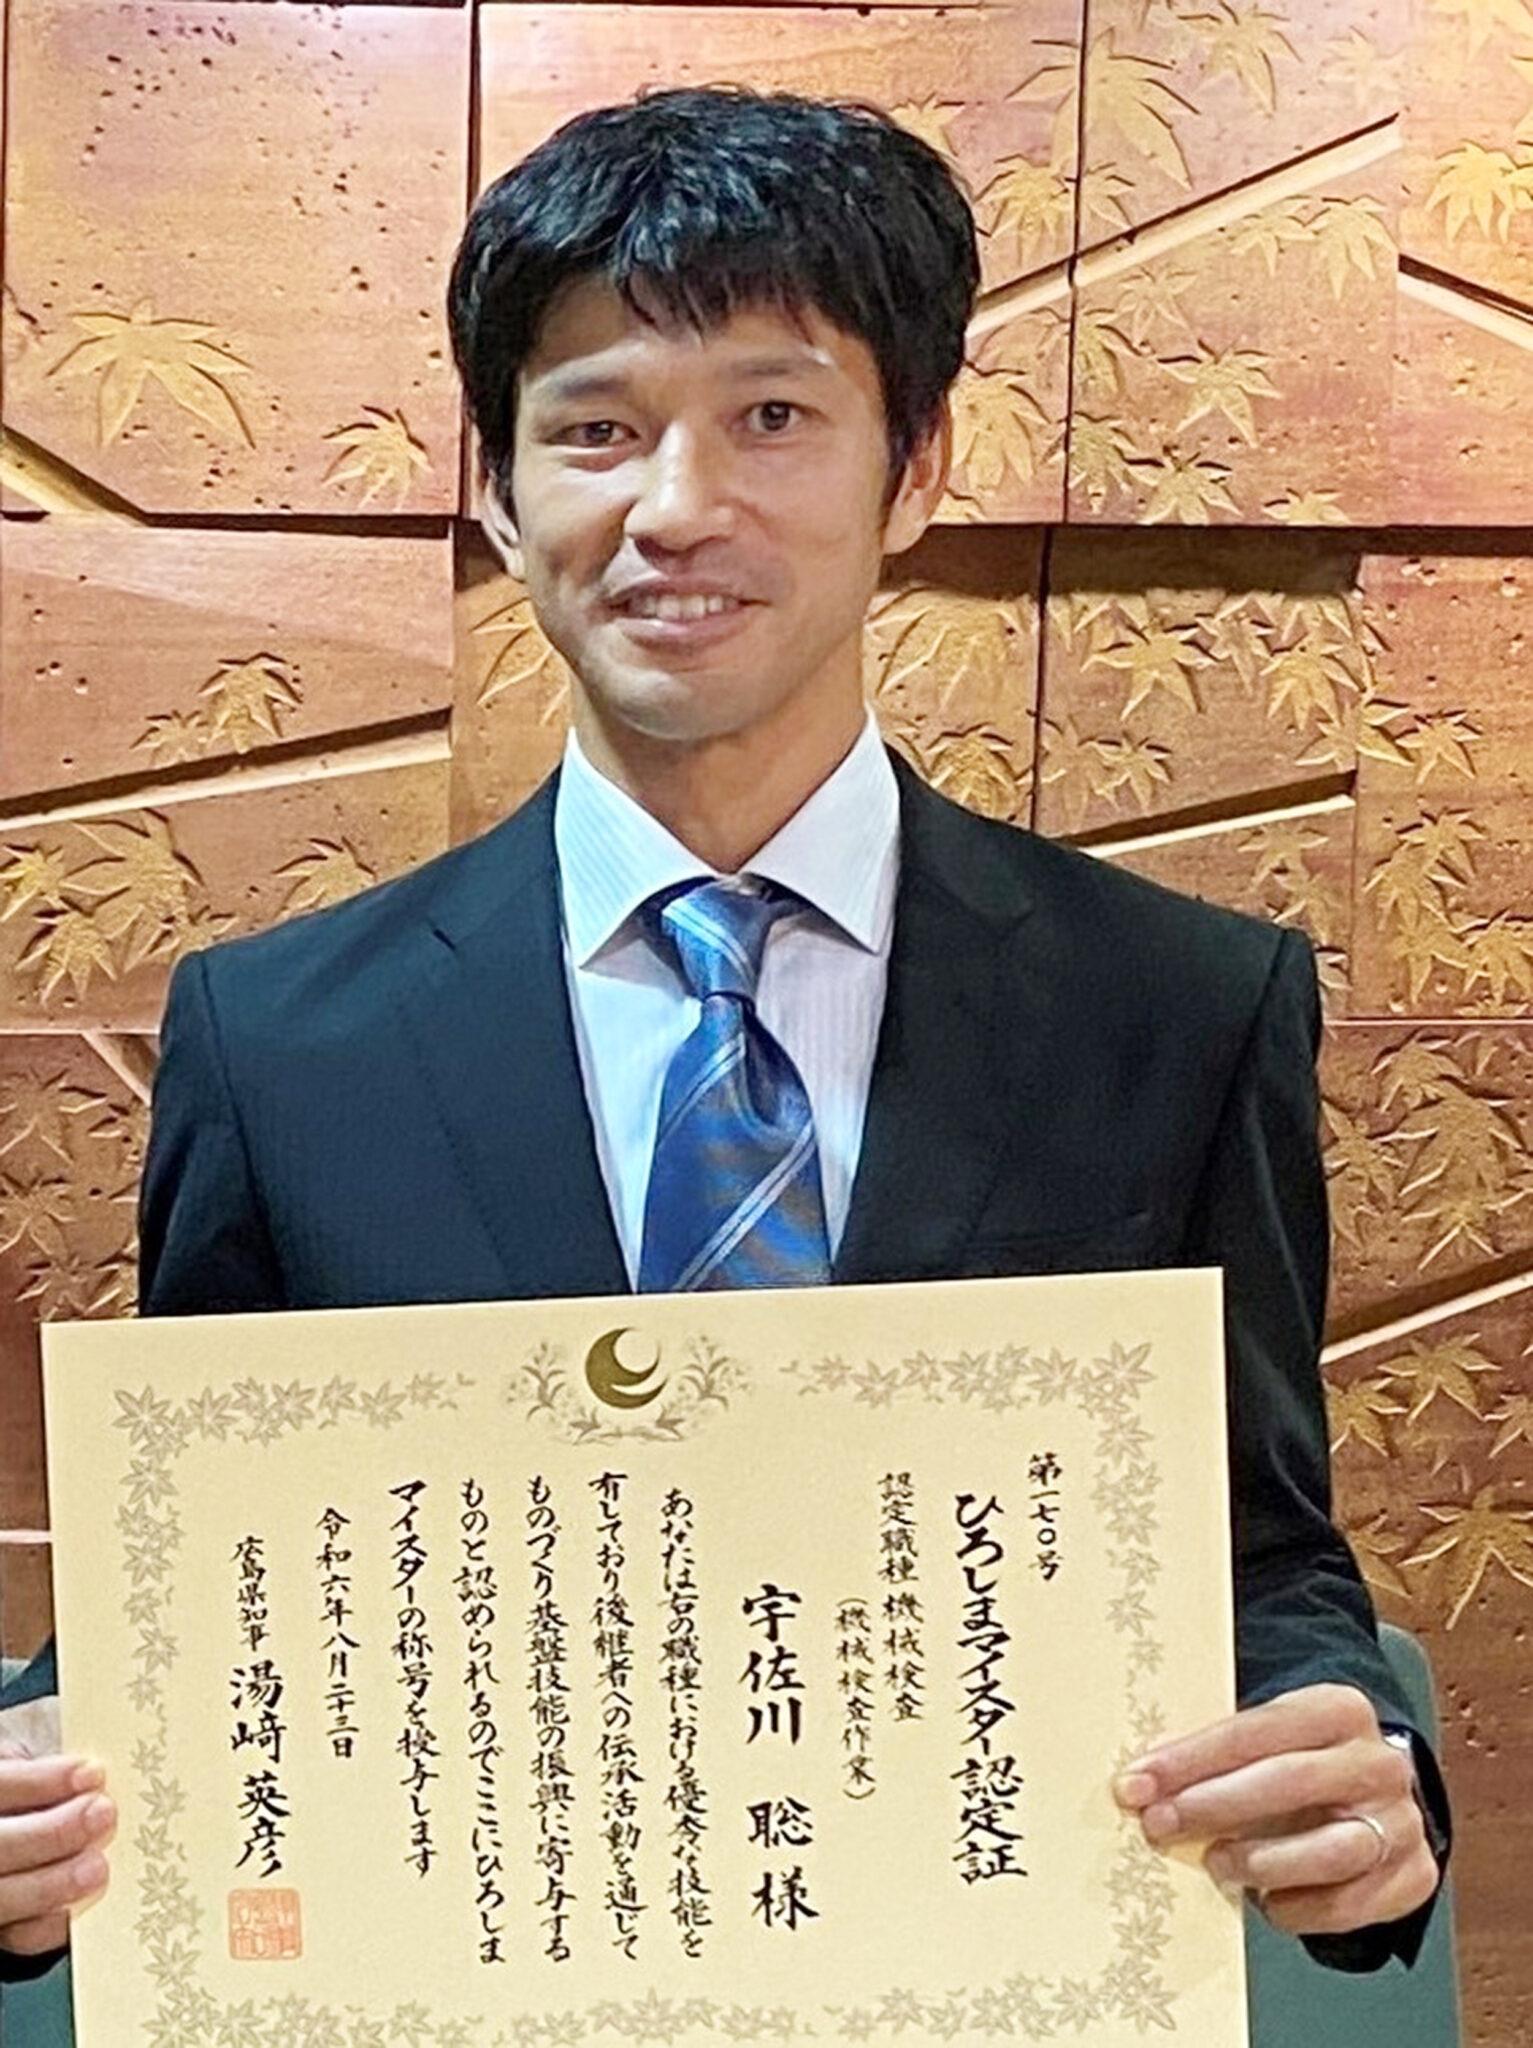 第一七〇号
ひろしまマイスター認定証
認定職種 機械検査
(機械検査作業)
宇佐川 聡 様
あなたは右の職種における優秀な技能を
有しており後継者への伝承活動を通じて
ものづくり基盤技能の振興に寄与する
ものと認められるのでここにひろしま
マイスターの称号を授与します
令和六年八月二十三日
広島県知事 湯﨑 英彦